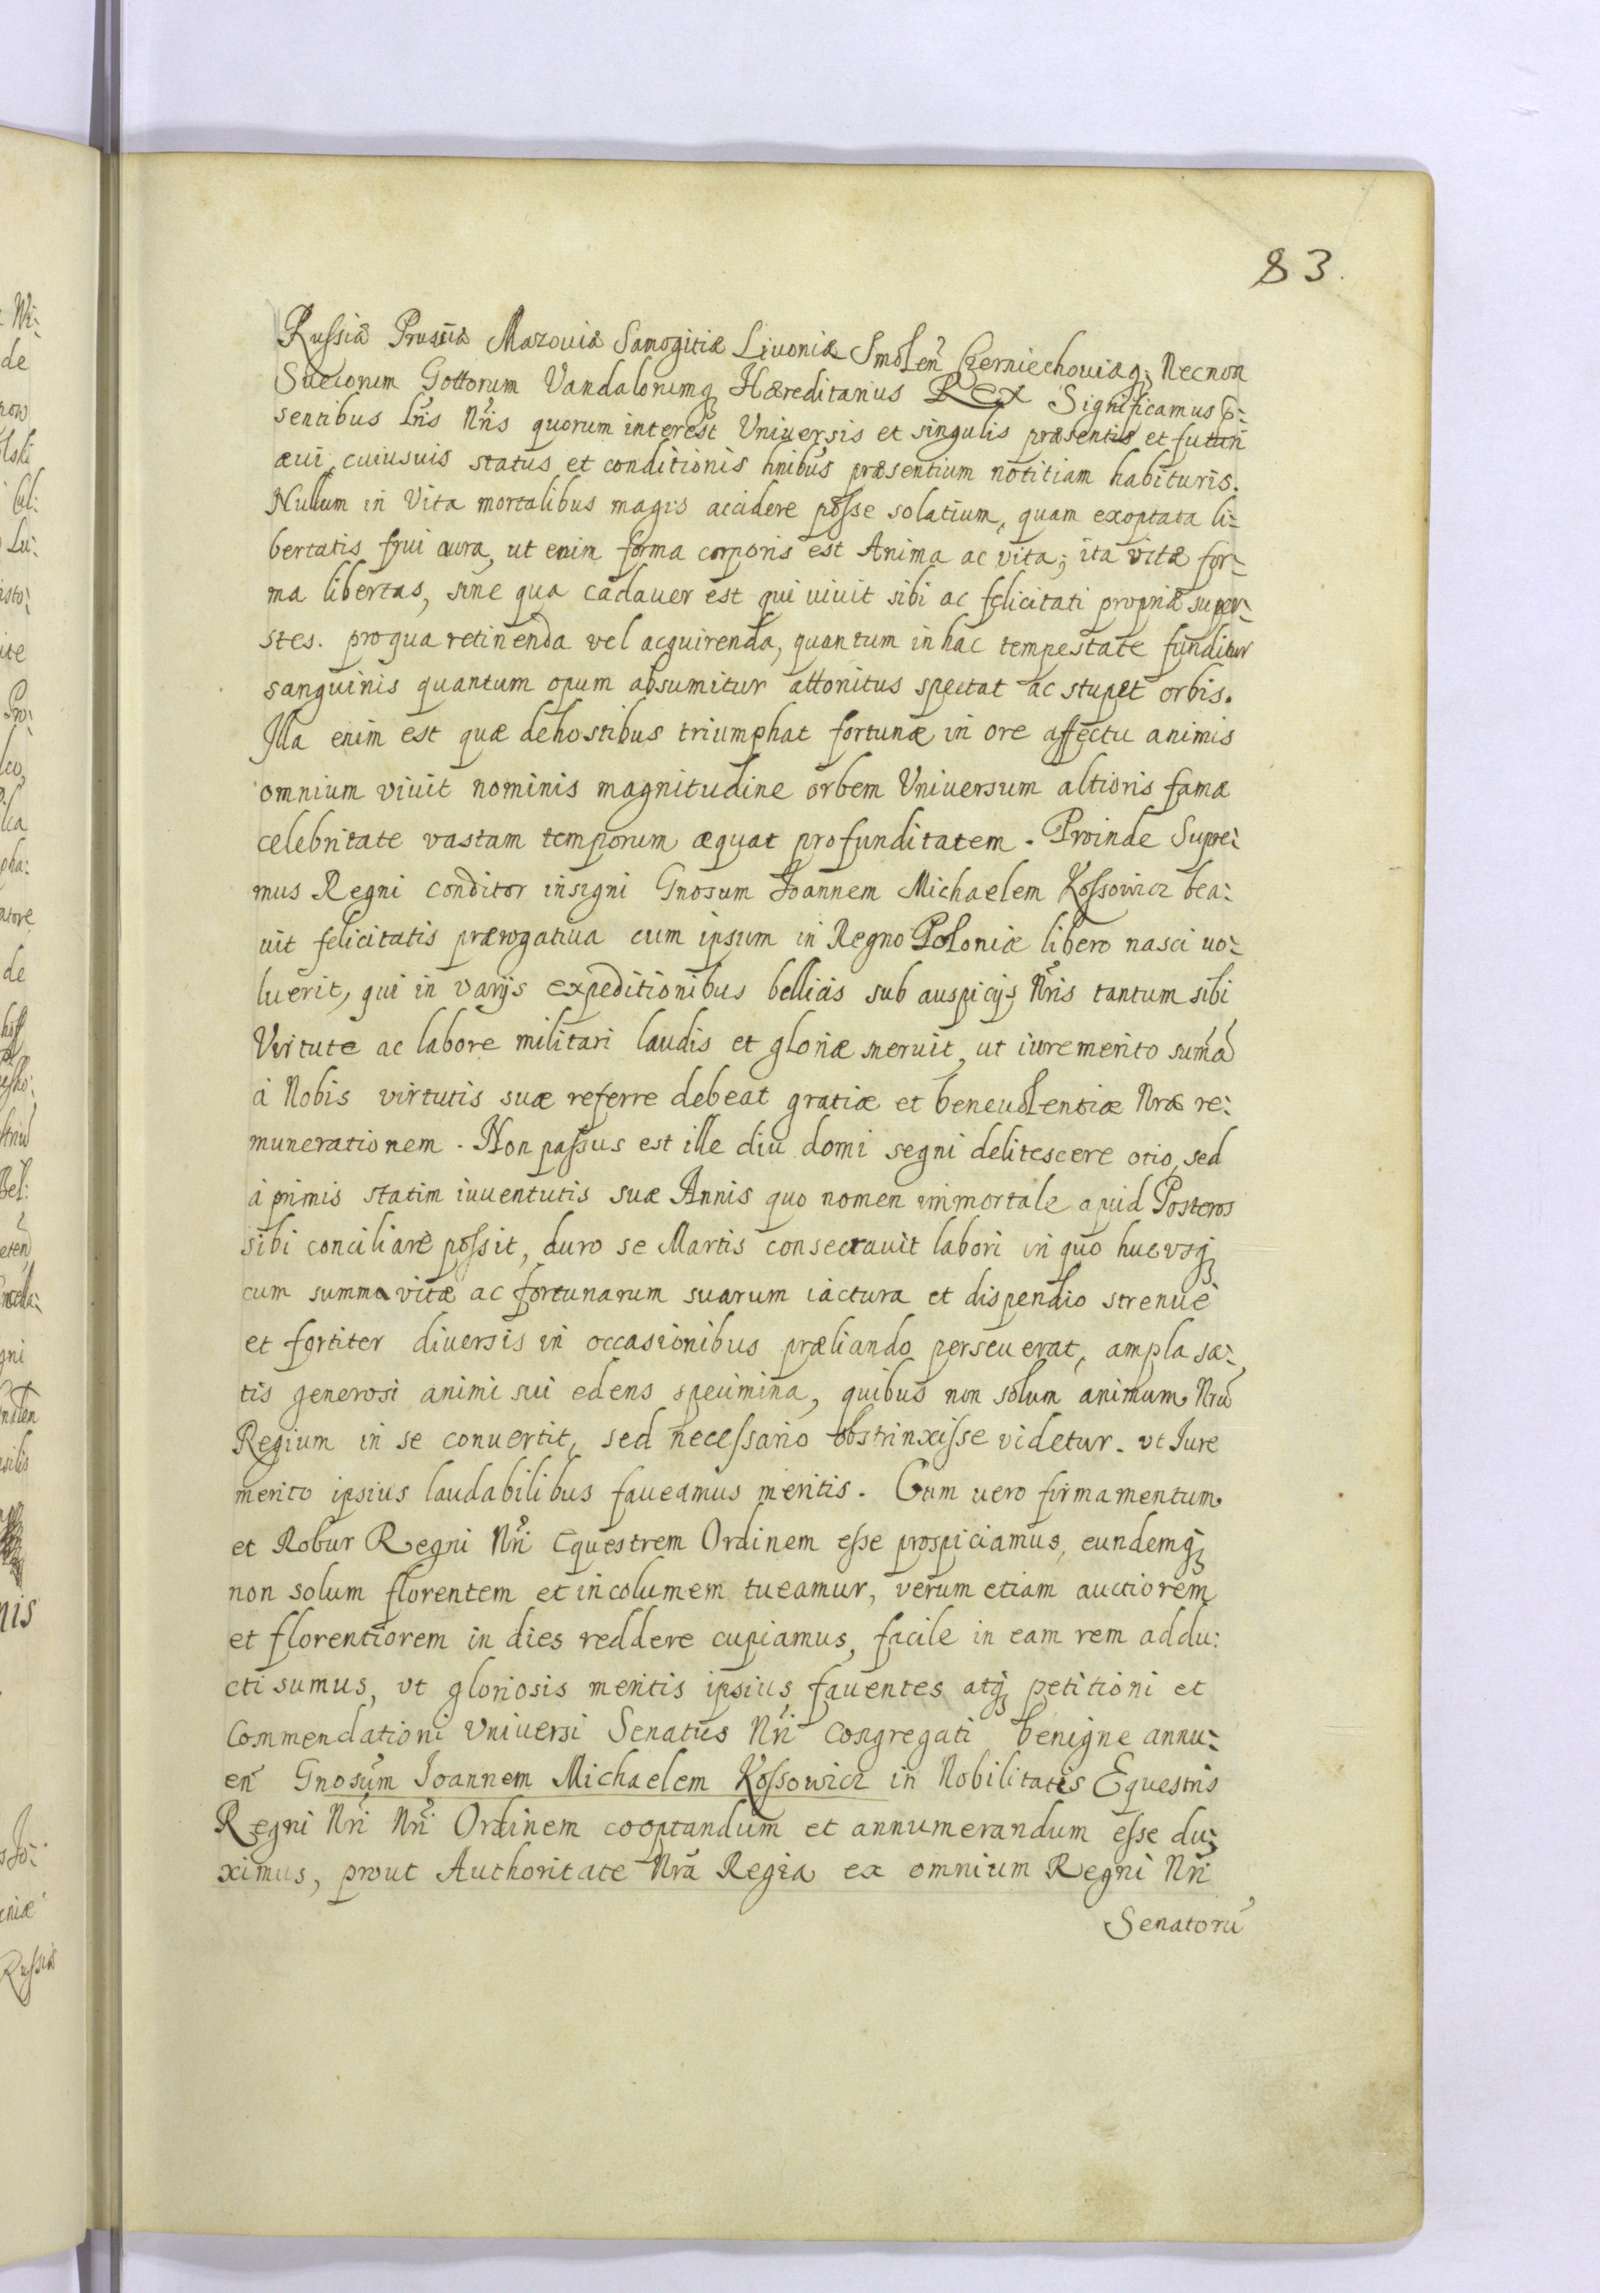 83.
Russiæ Prussiæ Mazouiæ Samogitiæ Liuoniæ Smolen Czerniechouiæq; Necnon
Suecorum Gottorum Vandalorumq Hæreditarius Rex Significamus p-
sentibus Lris Nris quorum interest Vniuersis et singulis præsentis et futuri
æui cuiusuis status et conditionis hnibus præsentium notitiam habituris.
Nullum in Vita mortalibus magis accidere posse solatium, quam exoptata li-
bertatis frui aura, ut enim forma corporis est Anima ac vita; ita vitæ for-
ma libertas, sine qua cadauer est qui viuit sibi ac felicitati propriæ super-
stes. pro qua retinenda vel acquirenda, quantum in hac tempestate funditur
sanguinis quantum opum absumitur attonitus spectat ac stupet orbis.
Illa enim est quæ de hostibus triumphat fortunæ in ore affectu animis
omnium viuit nominis magnitudine orbem Vniuersum altioris famæ
celebritate vastam temporum æquat profunditatem. Proinde Supre-
mus Regni conditor insigni Gnosum Joannem Michaelem Kossowicz bea-
uit felicitatis prærogatiua cum ipsum in Regno Poloniæ libero nasci uo-
luerit, qui in varijs expeditionibus bellicis sub auspicijs Nris tantum sibi
Virtute ac labore militari laudis et gloriæ meruit, ut iure merito sumá
à Nobis virtutis suæ referre debeat gratiæ et beneuolentiæ Nræ re-
munerationem. Non passus est ille diu domi segni delitescere otio, sed
à primis statim iuuentutis suæ Annis quo nomen immortale apud Posteros
sibi conciliare possit, duro se Martis consecrauit labori in quo hucvsq
cum summa vitæ ac fortunarum suarum iactura et dispendio strenuè
et fortiter diuersis in occasionibus præliando perseuerat, ampla sa-
tis generosi animi sui edens specimina, quibus non solum animum Nrũ
Regium in se conuertit, sed necessario obstrinxisse videtur. vt Jure
merito ipsius laudabilibus faueamus meritis. Cum uero firmamentum
et Robur Regni Nri Equestrem Ordinem esse prospiciamus, eundemq
non solum florentem et incolumem tueamur, verum etiam auctiorem
et florentiorem in dies reddere cupiamus, facile in eam rem addu-
cti sumus, vt gloriosis meritis ipsius fauentes atq petitioni et
Commendationi Vniuersi Senatus Nri congregati benigne annu-
en Gnosum Joannem Michaelem Kossowicz in Nobilitatis Equestris
Regni Nri Nri Ordinem cooptandum et annumerandum esse du-
ximus, prout Authoritate Nra Regia ex omnium Regni Nri
Senatorũ